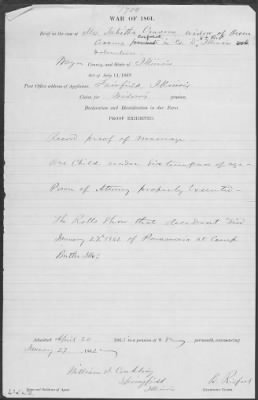 WAR OF 1861.
Brief in the case of Mrs. Tabitha widow of
in Co. Illinois
Volunteers
Wayne County, and State of Illinois
Act of July 14, 1862.
Post Office address of Applicant: Fairfield, Illinois
Claim for Widow's pension.
Declaration and Identification in due Form.
PROOF EXHIBITED.
Record proof of marriage
One Child under sixteen years of age
Power of Attorney properly executed
The Rolls show that decedent died
January 27th 1862 of Pneumonia at Camp
Butler Ills.
Admitted April 20 186 to a pension of 8 per month, commencing
January 27 1862
William J. Conkling
Springfield
Illinois
Name and Residence of Agent.
Examining Clerk.